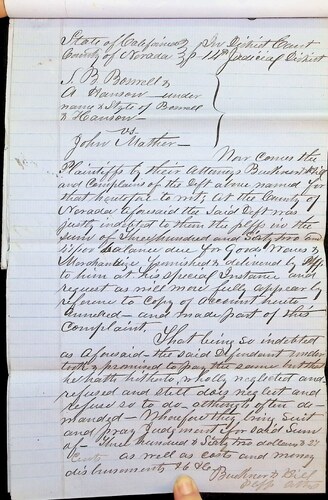 State of California } In District Court
County of Nevada } 14th Judicial District
J. B. Bonnell &
A Hanson – under
name & Style of Bonnell
& Hanson –
vs
John Mather –
Now comes the
Plaintiffs by their Attorneys Buckner & Hill
and Complains of the Deft above named for
that heretofore to wit, at the County of
Nevada aforesaid the said Deft was
justly indebted to them the plffs in the
Sum of Three hundred and Sixty two and
balance due for Goods Wares &
Merchandise furnished & delivered by Plffs
to him at his special Instance and
request as will more fully appear by
reference to Copy of Account hereto
annexed – and made part of this
complaint.
That being so indebted
as aforesaid – the said Defendant under
took & promised to pay the same but this
he hath hitherto, wholly neglected and
refused and still does neglect and
refuse so to do – although often de
manded – Wherefore they bring suit
and pray Judgment for said Sum
of Three hundred & Sixty two dollars & 27
Cents as well as costs and money
disbursements &c &c
Buckner & Hill
Plffs Attys